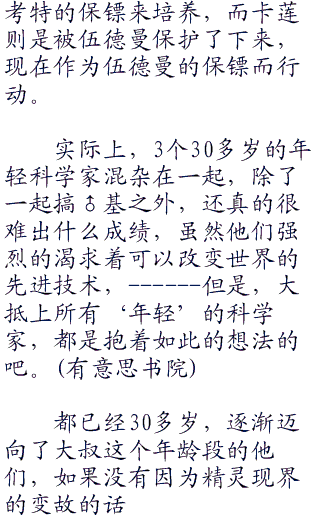 考特的保镖来培养，而卡莲
则是被伍德曼保护了下来，
现在作为伍德曼的保镖而行
动。
实际上，3个30多岁的年
轻科学家混杂在一起，除了
一起搞♂基之外，还真的很
难出什么成绩，虽然他们强
烈的渴求着可以改变世界的
先进技术，------但是，大
抵上所有‘年轻’的科学
家，都是抱着如此的想法的
吧。(有意思书院)
都已经30多岁，逐渐迈
向了大叔这个年龄段的他
们，如果没有因为精灵现界
的变故的话